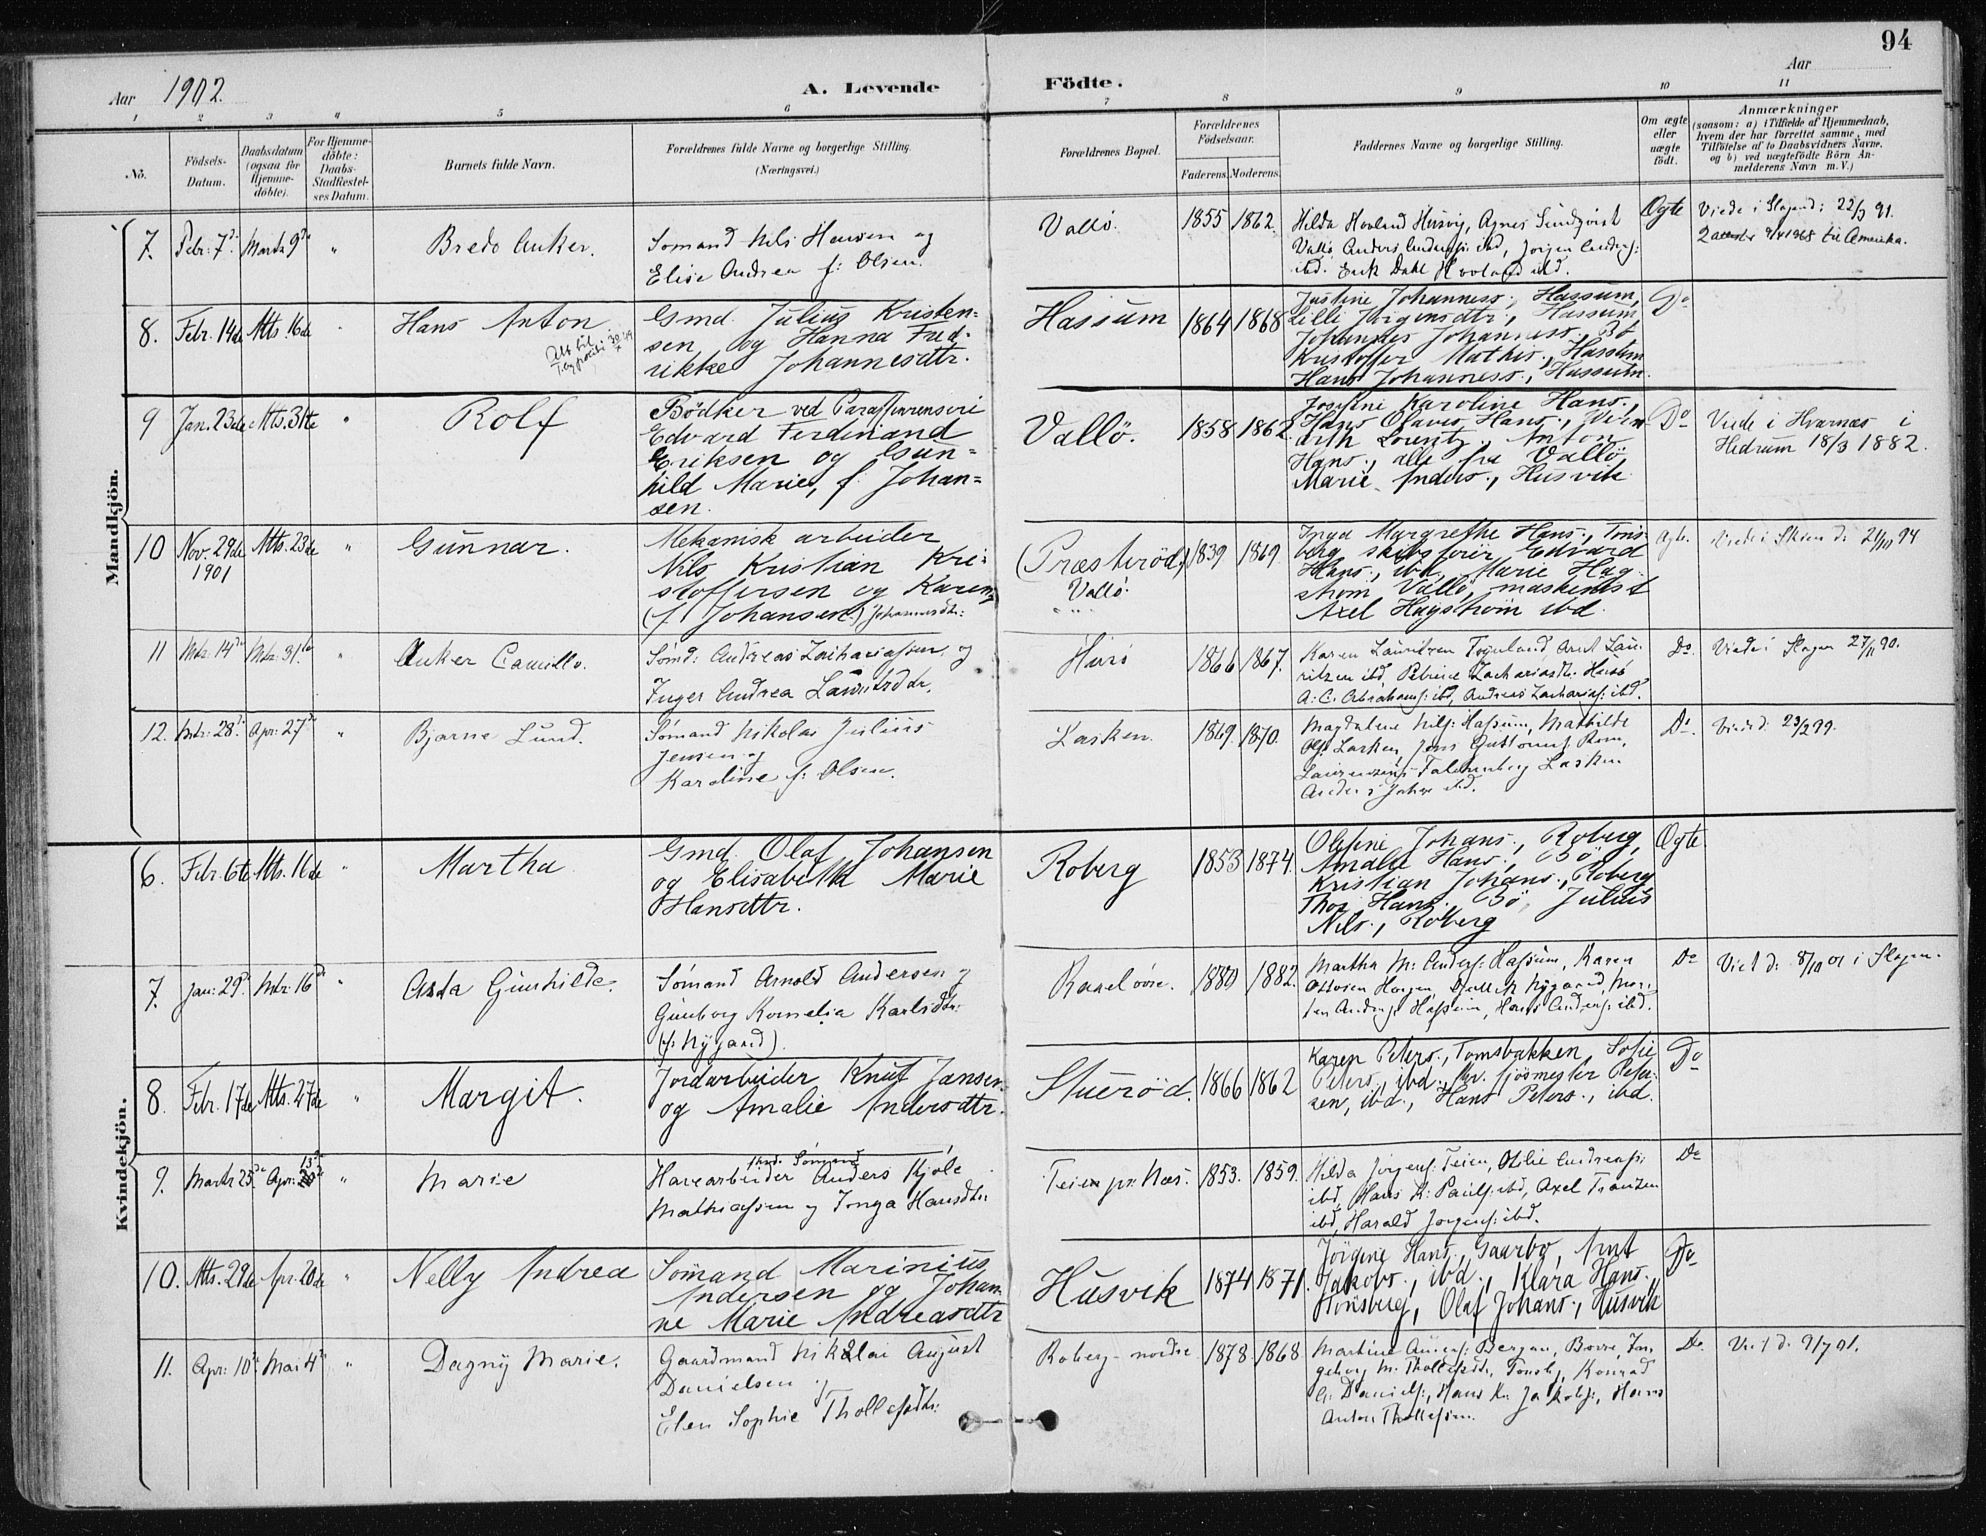 94
Aar 1902.
A. Levende Födte.
Aar
1 2 3 4 5 6 7 8 9 10 11
No.
Födsels-
Datum.
Daabsdatum
(ogsaa for
Hjemme-
döbte).
For Hjemme-
döbte:
Daabs-
Stadfestel-
ses Datum.
Barnets fulde Navn.
Forældrenes fulde Navne og borgerlige Stilling.
(Næringsvei.)
Forældrenes Bopæl.
Forældrenes
Födselsaar.
Faderens. Moderens.
Faddernes Navne og borgerlige Stilling.
Om ægte
eller
uægte
födt.
Anmærkninger
(saasom: a) i Tilfælde af Hjemmedaab,
hvem der har forrettet samme, med
Tilföielse af to Daabsvidners Navne,
og b) ved uægtefödte Börn An-
melderens Navn m. V.)
Mandkjön.
7. Febr: 7de Marts 9de " Bredo Anker.
Sömand Nils Hansen og
Elise Andrea f: Olsen.
Vallö. 1855 1862.
Hilda Hovland Husvig, Agnes Sundqvist
Vallö, Anders Anderss: ibd, Jørgen Anders:
ibd. Erik Dahl Hovland ibd.
Ægte
Viede i Slagen d: 22/3 91.
til Amerika.
8. Febr. 14de Mts. 16de " Hans Anton
Gmd. Julius Kristen-
sen og Hanna Fred-
rikke Johannesdtr.
Hassum 1864 1868
Justine Johanness., Hassum,
Lilli Jörgensdtr., Hassum
Johannes Johanness., Bö
Kristoffer Mathis., Hassum
Hans Johanness., Hassum.
Do
9 Jan. 23de Mts. 31te " Rolf
Bödker ved
Edvard Ferdinand
Eriksen og Gun-
hild Marie, f. Johan-
sen.
Vallö. 1858 1862
Josefine Karoline Hans.,
Hans Olavis Hans.,
Lorentz., Anton
Hans., alle fra Vallö,
Marie Anders., Husvik
Do
Viede i Hvarnes i
Hedrum 18/3 1882.
10 Nov. 29de Mts. 23de " Gunnar.
1901
Mekanisk arbeider
Nils Kristian Kri-
stoffersen og Karen
(f. Johansen) Johannesdtr:
(Præsteröd) 1839 1869
Vallö.
Inga Margrethe Hans., Töns-
berg, Edvard
Hans., ibd., Marie Hag-
ström Vallö, maskinist
Axel Hagström ibd.
Ægte.
Viede i Skien d: 94
11 Mts: 14de Mts: 31te " Anker Camillo.
Sömd: Andreas Zachariassen og
Inger Andrea Lauritsdtr.
Husö 1866 1867.
Karen Lauritzen Föynland, Anet Lau-
ritzen ibd, Petrine Zachariasdtr: Husö
A: C. Abrahams: ibd, Andreas Zacharias: ibd.
Do.
Viede i Slagen 27/11 90.
12. Mts: 28de Apr: 27de " Bjarne Lund.
Sömand Nikolai Julius
Jensen og
Karoline f: Olsen.
Lasken. 1869. 1870.
Magdalene Nils: Hassum, Mathilde
Ols: Lasken, Jens Guttorms: Rom,
Falkenberg Lasken
Anders ibd.
Do.
Viede d: 23/2 99.
Kvindekjön.
6. Febr. 6te Mts. 16de " Martha
Gmd. Olaf Johansen
og Elisabeth Marie
Hansdttr.
Roberg 1853 1874.
Olefine Johans., Roberg,
Amalie Hans., Bö,
Kristian Johans., Roberg
Thor Hans., Bö, Julius
Nils., Roberg
Ægte
7. Jan: 29de Mts: 16de " Asta Gunhilde.
Sömand Arnold Andersen og
Gunborg Kornelia Karlsdtr:
(f: Nygaard).
Ramel övre. 1880 1882.
Martha M: Anders: Hassum, Karen
Ottosen Horgen, Nygaard, Mor-
ten Anders: Hassum, Hans Anders: ibd.
Do
Viet d: 8/10 01 i Slagen.
8. Febr. 17de Mts. 27de " Margit.
Jordarbeider Knut Jansen
og Amalie Andersdtr.
Stueröd. 1866 1862
Karen Peters., Tomsbakken, Sofie
Peters., ibd., Peter-
sen, ibd., Hans Peters., ibd.
Do
9. Marts 25de Apr: 13de " Marie
Havearbeider Anders Kjöle
Mathiassen og Inga Hansdtr:
Teien pr. Næs. 1853. 1859.
Hilda Jörgens: Teien, Otilie Andreas:
ibd, Hans K: Pauls: ibd, Axel Frantzen
ibd, Harald Jörgens: ibd.
Do
10. Mts. 29de Apr. 20de " Nelly Andrea
Sömand Marinius
Andersen og Johan-
ne Marie Andreasdtr
Husvik 1874 1871.
Jörgine Hans., Gaarbo, Arnt
Jakobs., ibd., Klara Hans.
Tönsberg, Olaf Johans., Husvik
Do
11. Apr: 10de Mai 4de " Dagny Marie.
Gaardmand Nikolai August
Danielsen og
Elen Sophie Thollefsdtr:
Roberg nordre 1878 1868
Martine Bergan, Borre, In-
geborg M: Thollefsdtr, Tönsbg, Konrad
G: Daniels:, Hans Kr. Jakobs:, Hans
Anton Thollefsen.
Do.
Viet d. 9/7 01.